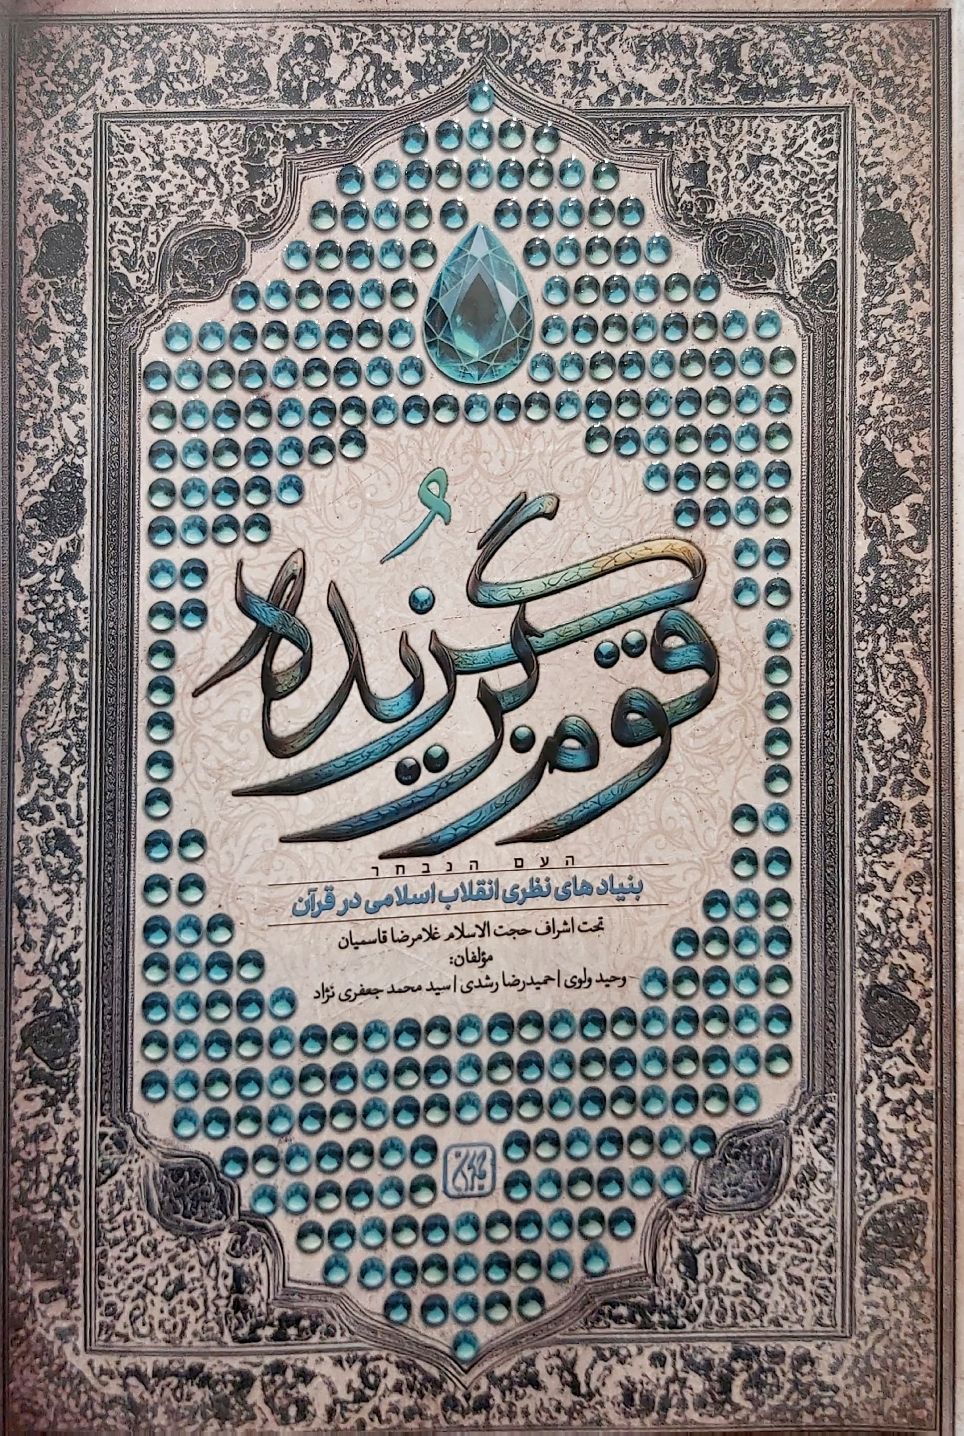 قوم برگزیده
העם הנבחר
بنیادهای نظری انقلاب اسلامی در قرآن
تحت اشراف حجت الاسلام غلامرضا قاسمیان
مؤلفان:
وحید ولوی | حمیدرضا رشدی | سید محمد جعفری نژاد